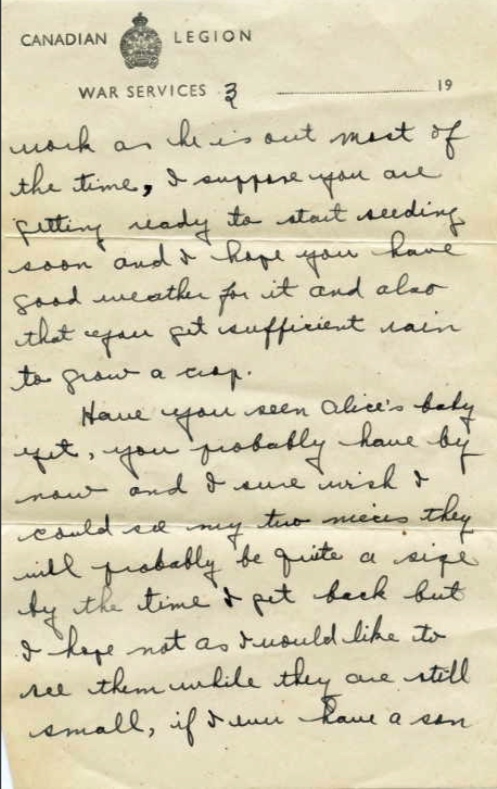 CANADIAN LEGION
WAR SERVICES 3 19
work as he is out most of
the time, I suppose you are
getting ready to start seeding
soon and I hope you have
good weather for it and also
that you get sufficient rain
to grow a crop.
Have you seen Alice's baby
yet, you probably have by
now and I sure wish I
could see my two nieces they
will probably be quite a size
by the time I get back but
I hope not as I would like to
see them while they are still
small, if I ever have a son